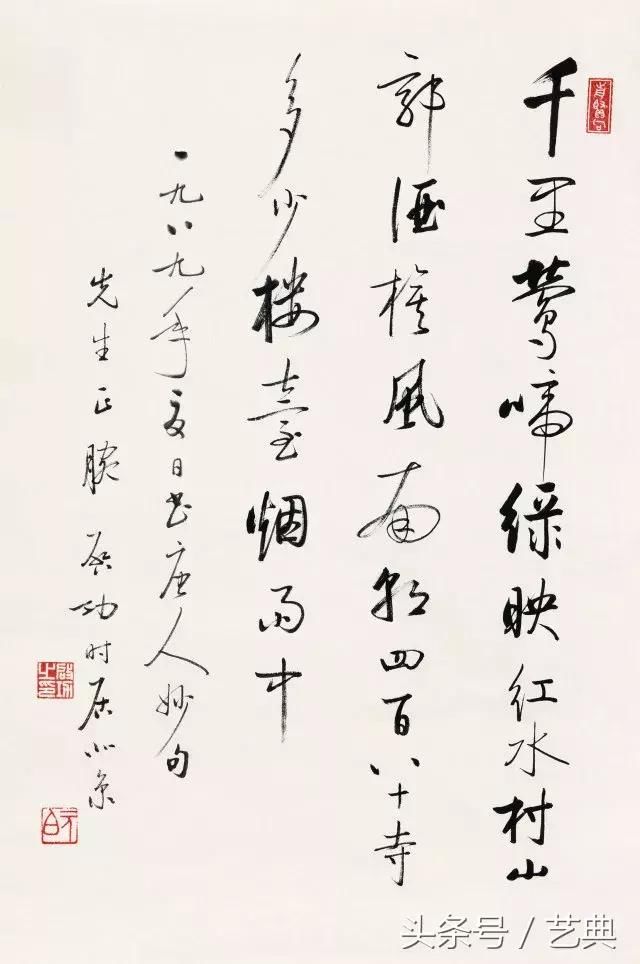 千里莺啼绿映红水村山
郭酒旗风南朝四百八十寺
多少楼臺烟雨中
一九八九年夏日书唐人妙句
先生正腕 启功时居北京
啟功之印
元白
头条号 / 艺典